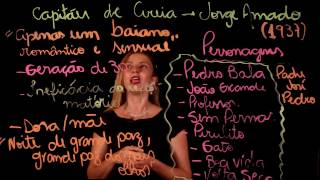 Capitães de Areia → Jorge Amado
(1937)
"Apenas um baiano
romântico e sensual
- Geração de 3
- Dora/mãe
"Noite de grande paz,
grande paz
Personagens
- Pedro Bala
- João Grande
- Professor
- Sem Pernas
- Pirulito
- Gato
- Boa Vida
- Volta Seca
Padre
José
Pedro